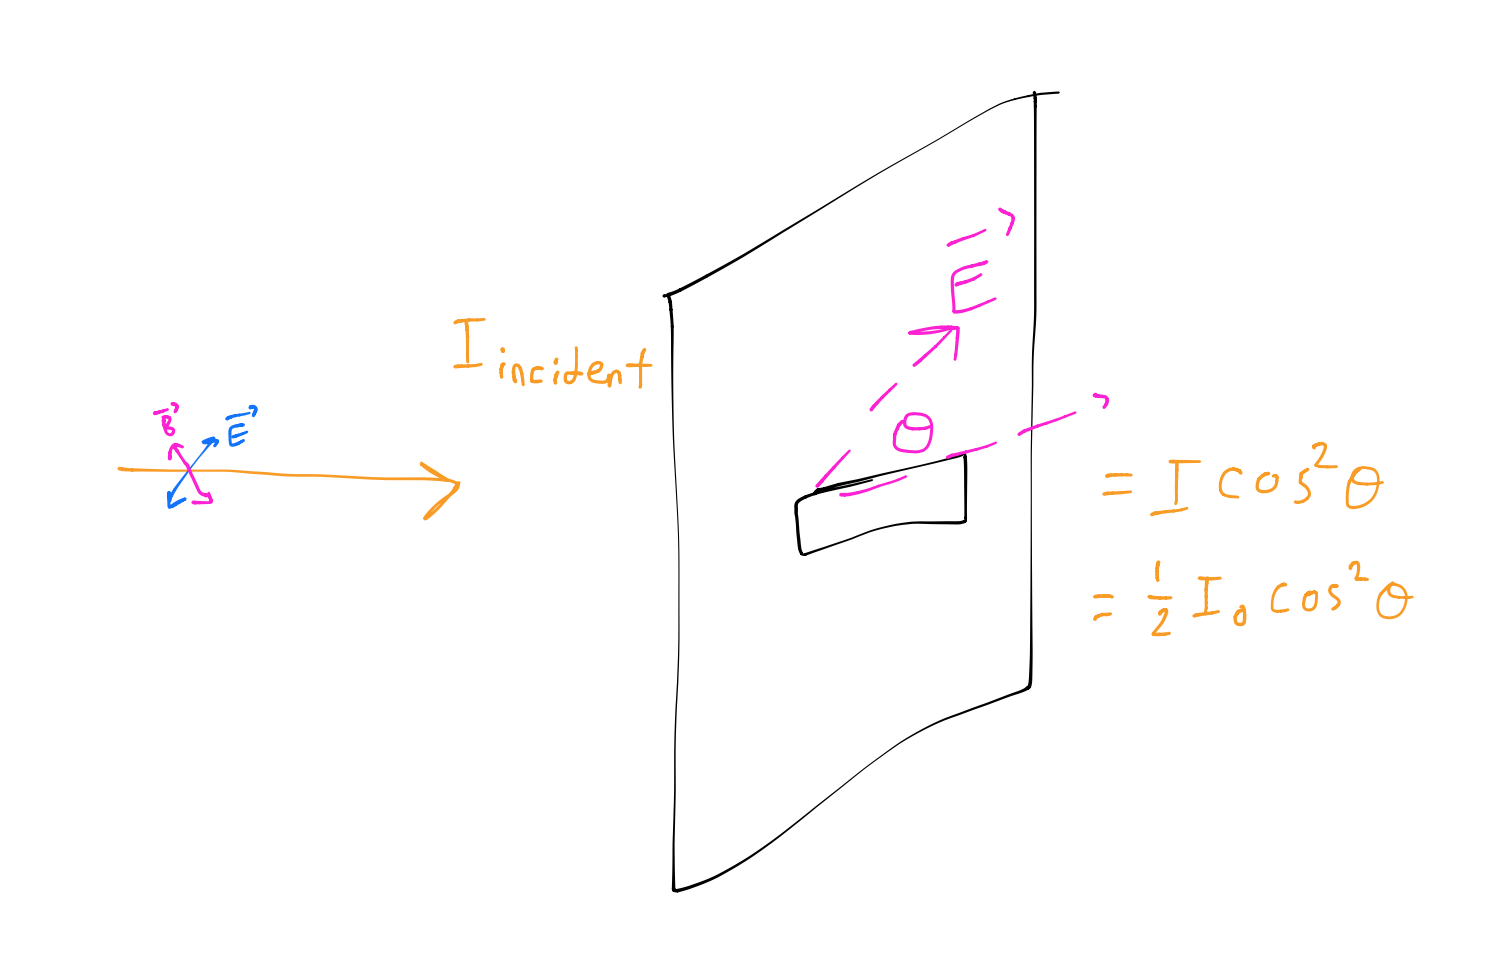 E⃗
I incident
B⃗
E⃗
θ
= I cos²θ
= ½ I₀ cos²θ